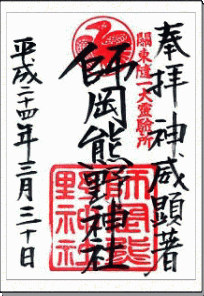 奉拝 神威顕著
關東随一大霊験所
師岡熊野神社
師岡熊
野神社
平成二十四年三月三十日